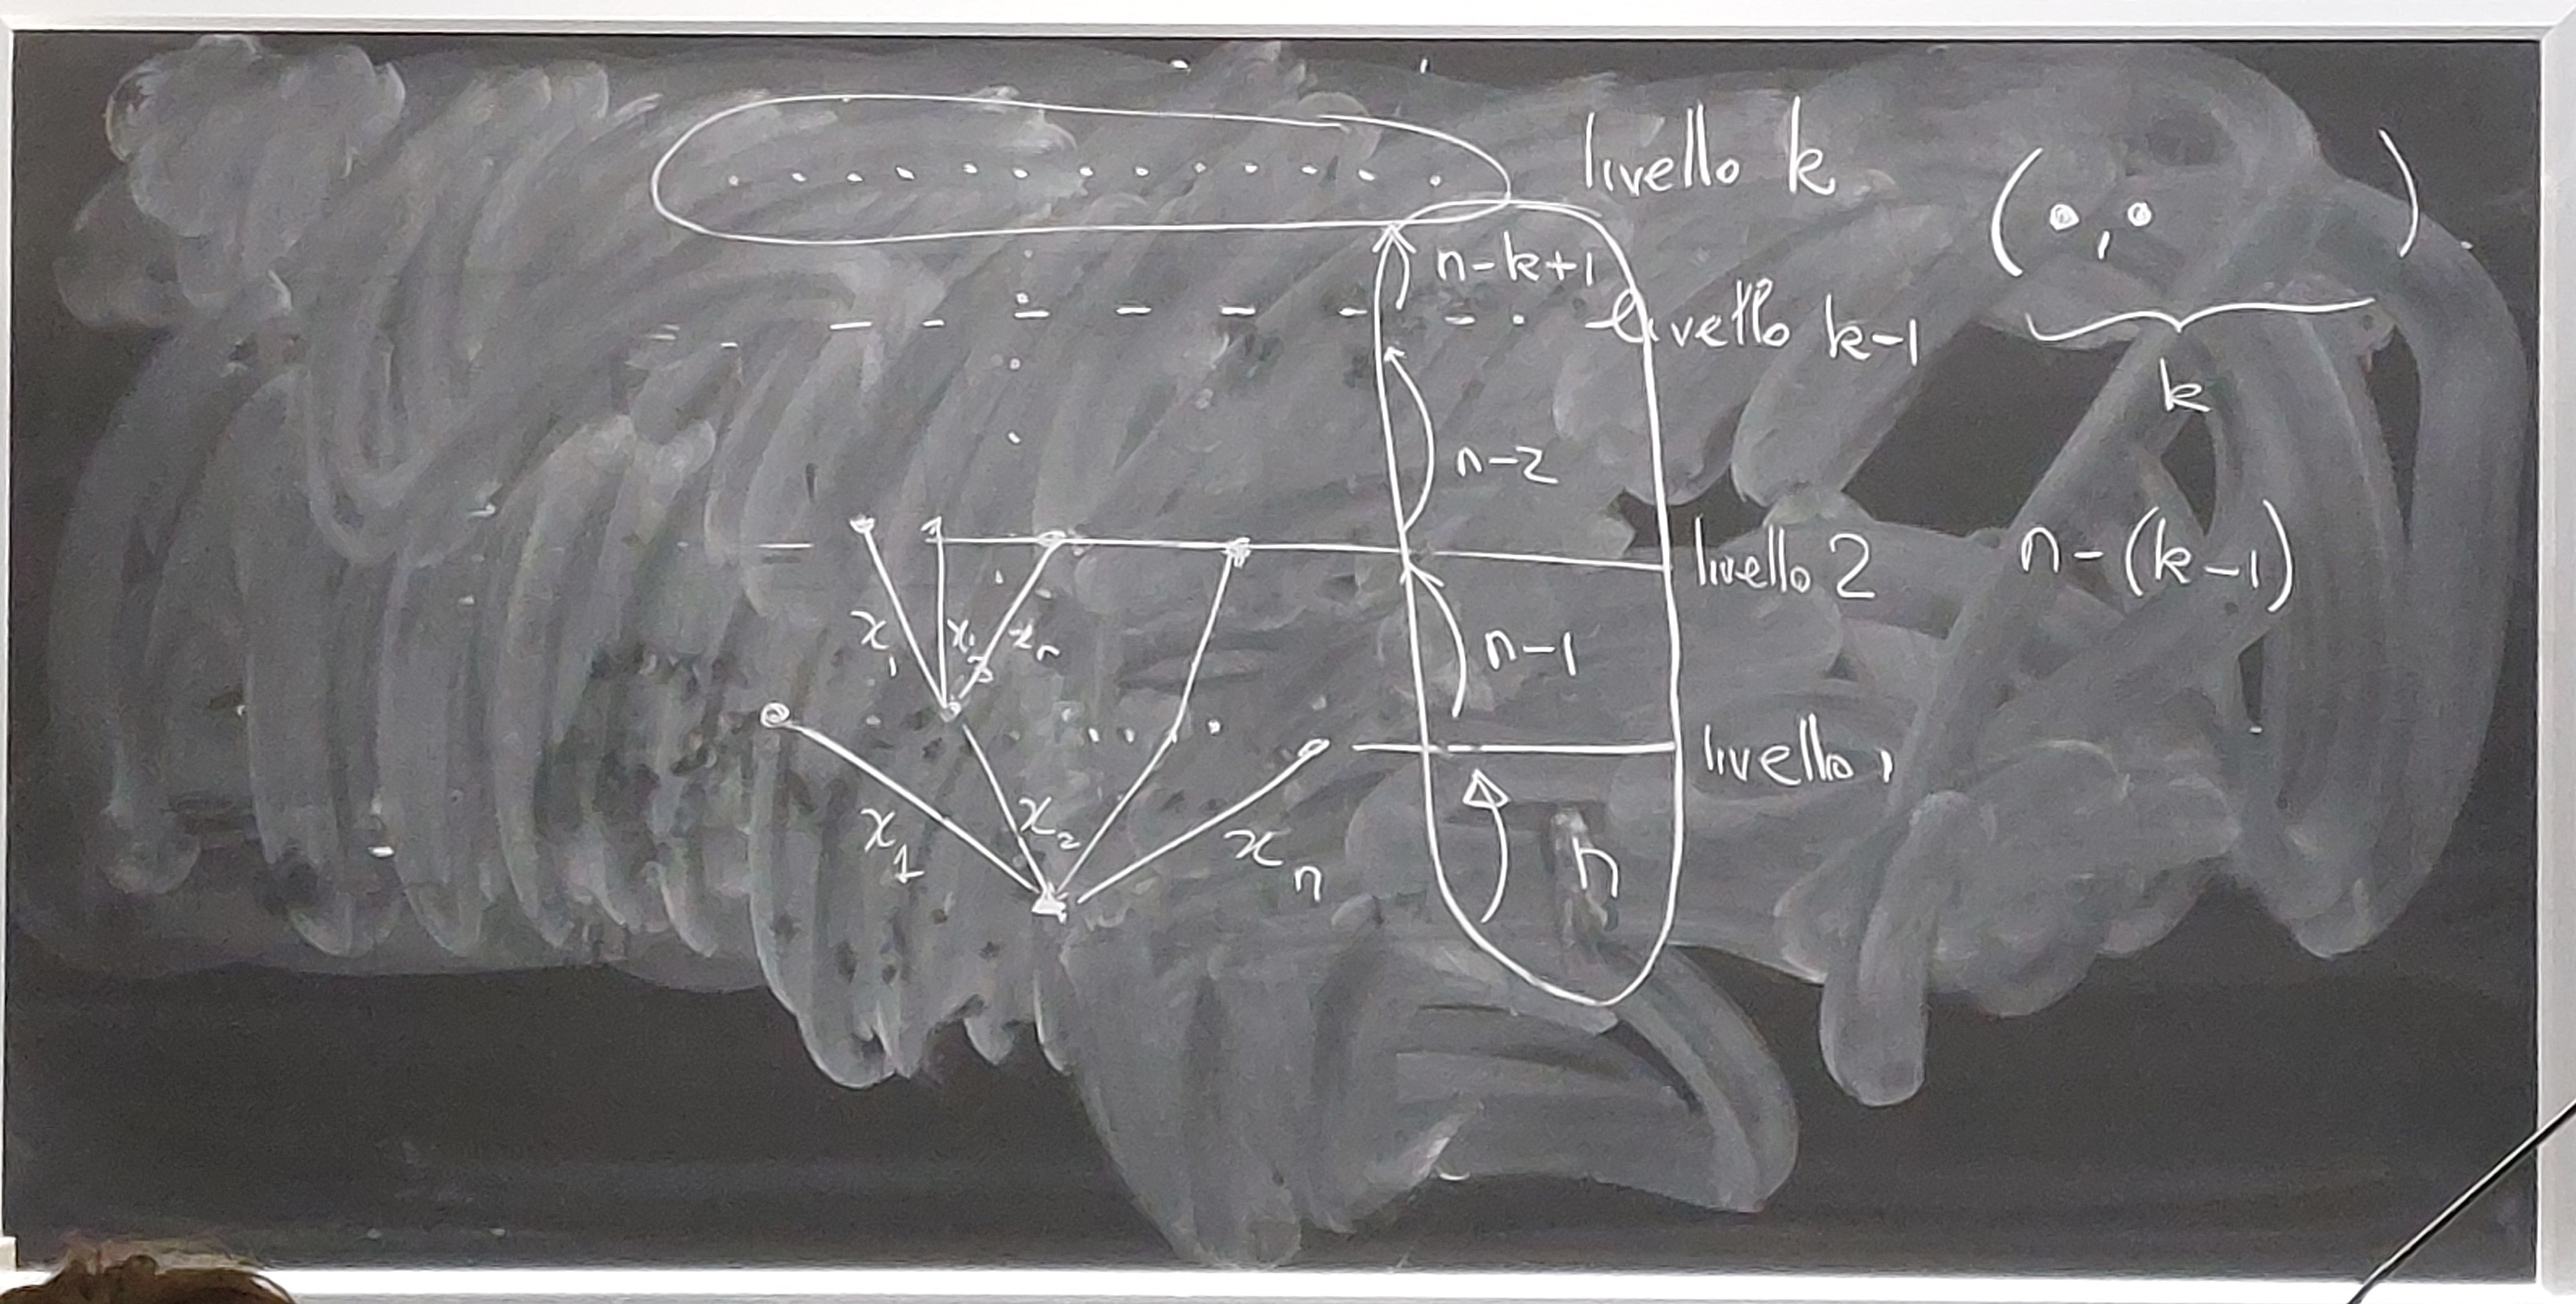 livello k
( , )
n-k+1
livello k-1
k
n-2
livello 2
n-(k-1)
x₁ x₃ xₙ
n-1
livello 1
x₁ x₂ xₙ
n